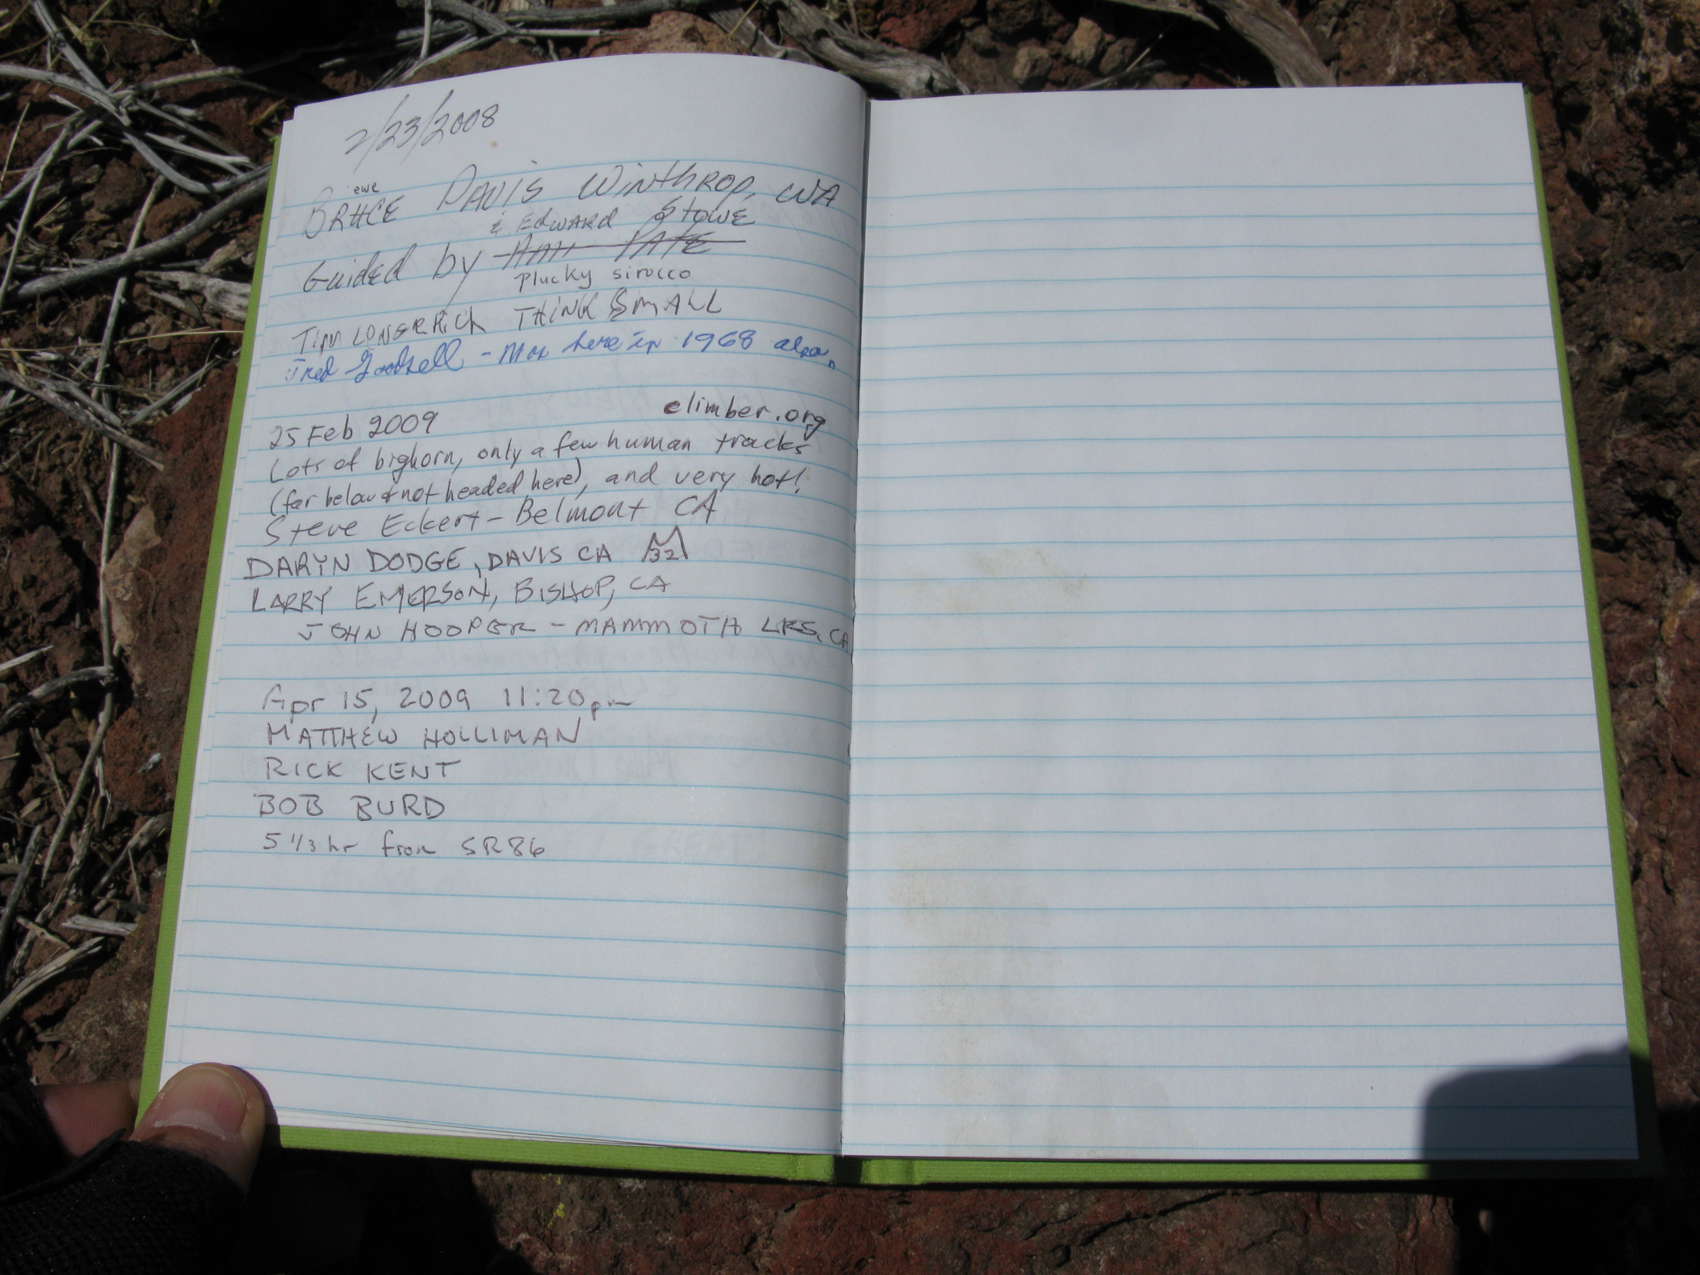 2/23/2008
ewe
BRUCE DAVIS WINTHROP, WA
& EDWARD STOWE
Guided by
Plucky sirocco
TIM LONGERICH THINK SMALL
Fred Goodsell - Was here in 1968 also.
25 Feb 2009 climber.org
Lots of bighorn, only a few human tracks
(far below & not headed here), and very hot!
Steve Eckert - Belmont CA
DARYN DODGE, DAVIS CA 32
LARRY EMERSON, BISHOP, CA
JOHN HOOPER - MAMMOTH LKS, CA
Apr 15, 2009 11:20pm
MATTHEW HOLLIMAN
RICK KENT
BOB BURD
5 1/3 hr from SR86